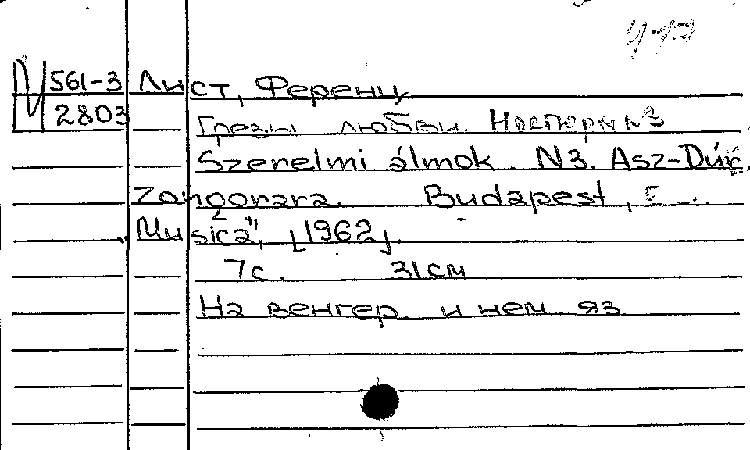 М 561-3 Лист, Ференц
2803 Грезы любви. Ноктюрн №3
Szerelmi álmok. N3. Asz-Dúr.
Zongorara. Budapest,
Musica", [1962].
7с. 31см
На венгер. и нем яз